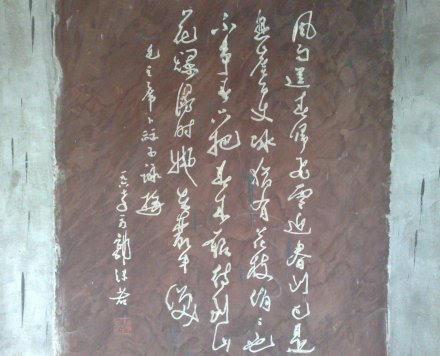 風雨送春归飛雪迎春到已是
悬崖百丈冰猶有花枝俏々也
不争春只把春来報待到山
花爛漫时她在叢中笑
毛主席卜算子咏梅
郭沫若